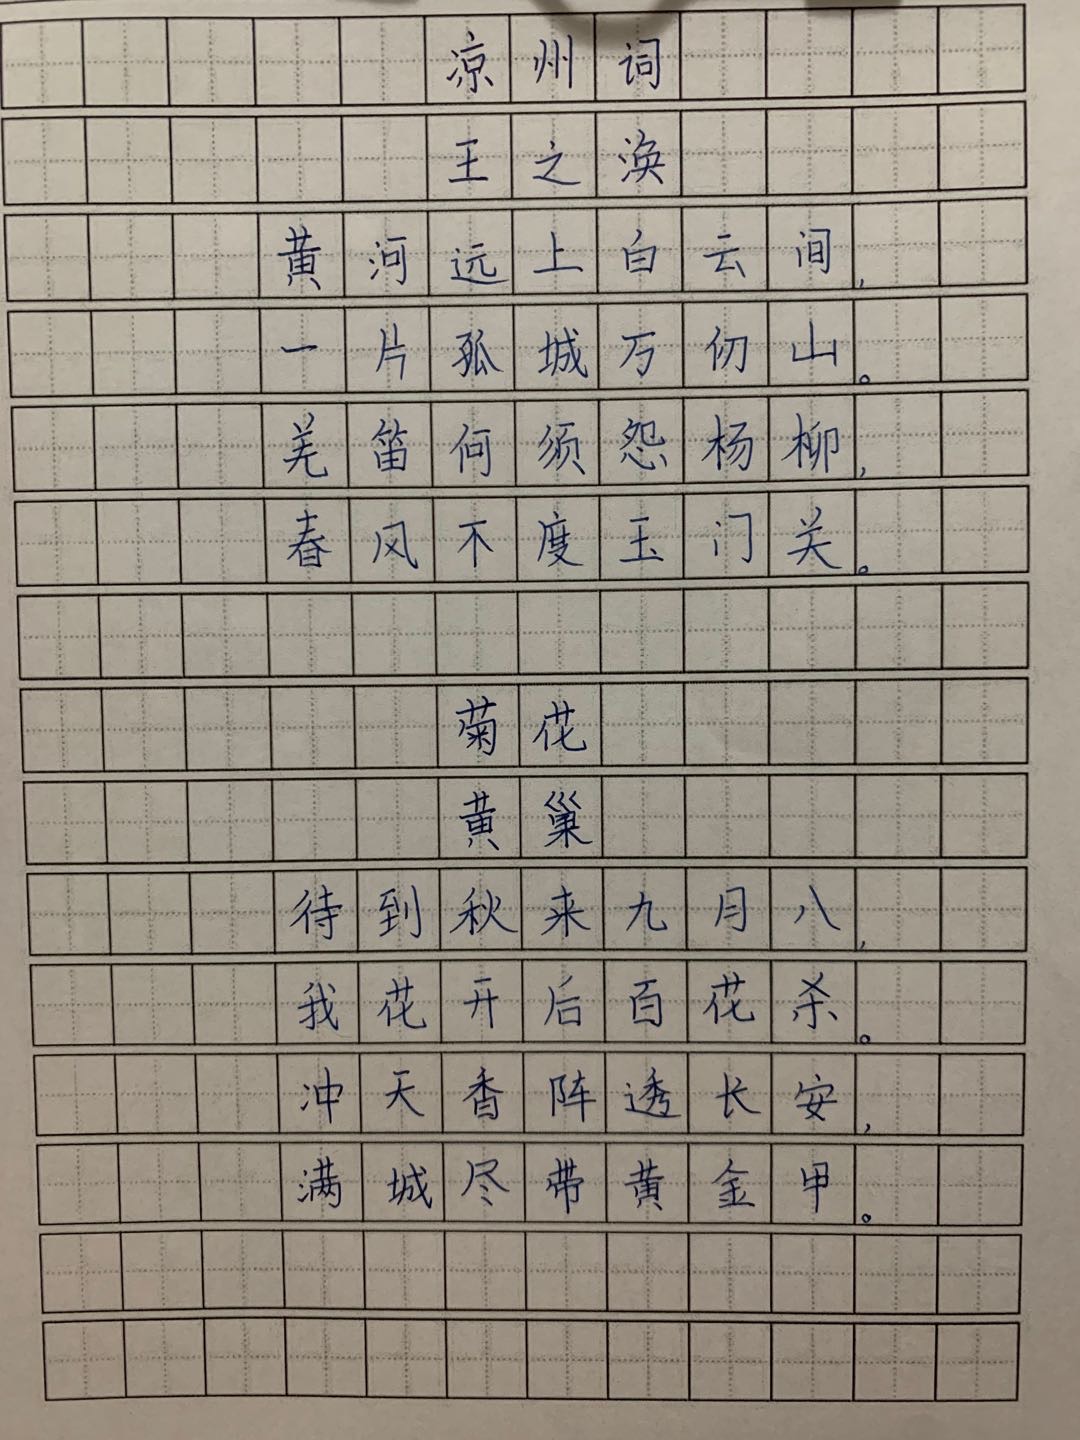 凉州词
王之涣
黄河远上白云间,
一片孤城万仞山。
羌笛何须怨杨柳,
春风不度玉门关。
菊花
黄巢
待到秋来九月八,
我花开后百花杀。
冲天香阵透长安,
满城尽带黄金甲。